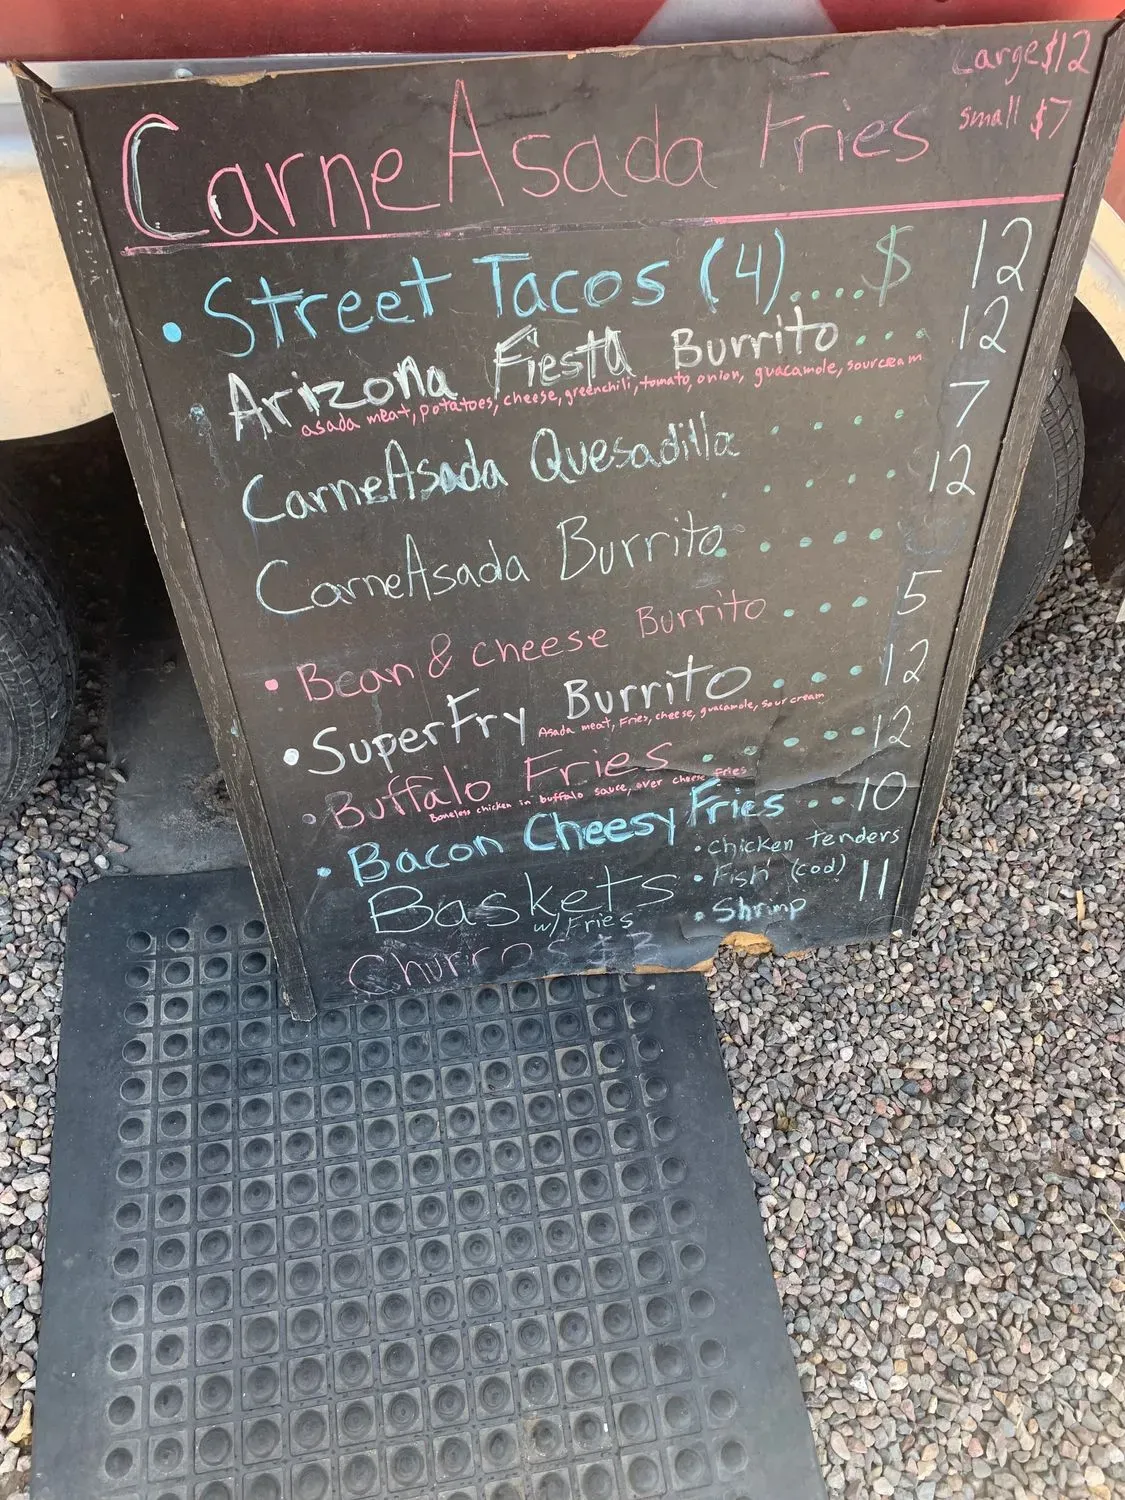 Large $12
small $7
Carne Asada Fries
• Street Tacos (4).....$ 12
• Arizona Fiesta Burrito . . . 12
asada meat, potatoes, cheese, greenchili, tomato, onion, guacamole, sourcream
Carne Asada Quesadilla . . . . 7
. . . . . 12
Carne Asada Burrito . . . . .
• Bean & cheese Burrito . . . . 5
• SuperFry Burrito . . . . 12
Asada meat, Fries, cheese, guacamole, sour cream
• Buffalo Fries . . . . . 12
Boneless chicken in buffalo sauce, over cheese fries
• Bacon Cheesy Fries . . . 10
Baskets • chicken tenders
w/ Fries • Fish (cod) 11
• Shrimp
Churros $3